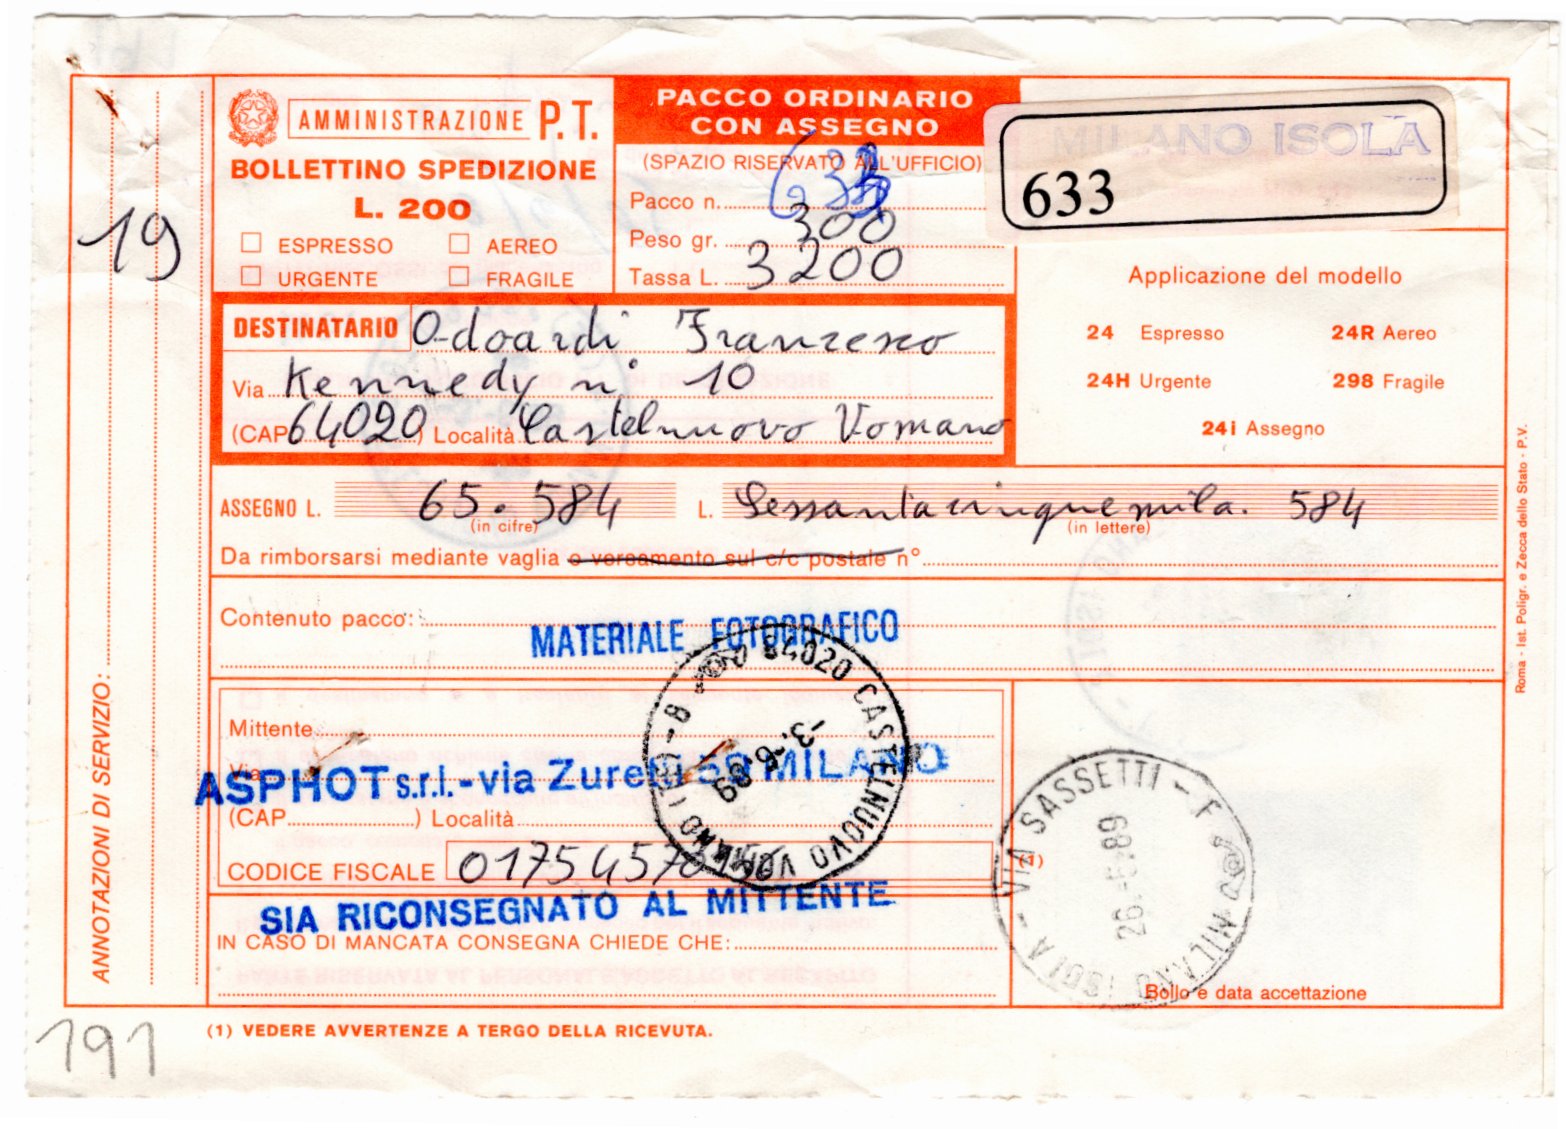 AMMINISTRAZIONE P.T.
BOLLETTINO SPEDIZIONE
L. 200
ESPRESSO AEREO
URGENTE FRAGILE
PACCO ORDINARIO
CON ASSEGNO
(SPAZIO RISERVATO ALL'UFFICIO)
Pacco n. 633
Peso gr. 300
Tassa L. 3200
MILANO ISOLA
633
Applicazione del modello
24 Espresso 24R Aereo
24H Urgente 298 Fragile
24i Assegno
19
DESTINATARIO Odoardi Francesco
Via Kennedy n° 10
(CAP 64020) Località Castelnuovo Vomano
ASSEGNO L. 65.584 L. Sessantacinquemila. 584
(in cifre) (in lettere)
Da rimborsarsi mediante vaglia o versamento sul c/c postale n°
Contenuto pacco:
MATERIALE FOTOGRAFICO
Mittente
Via
ASPHOT s.r.l. - via Zuretti 50 MILANO
(CAP ) Località
CODICE FISCALE 017545701
(1)
64020 CASTELNUOVO VOMANO (TE) - B
-3.-6.89
SIA RICONSEGNATO AL MITTENTE
IN CASO DI MANCATA CONSEGNA CHIEDE CHE:
MILANO ISOLA - VIA SASSETTI - F
26.-5.89
Bollo e data accettazione
ANNOTAZIONI DI SERVIZIO:
Roma - Ist. Poligr. e Zecca dello Stato - P.V.
(1) VEDERE AVVERTENZE A TERGO DELLA RICEVUTA.
191